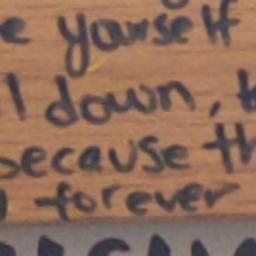 e yourself
l down, t
because th
forever